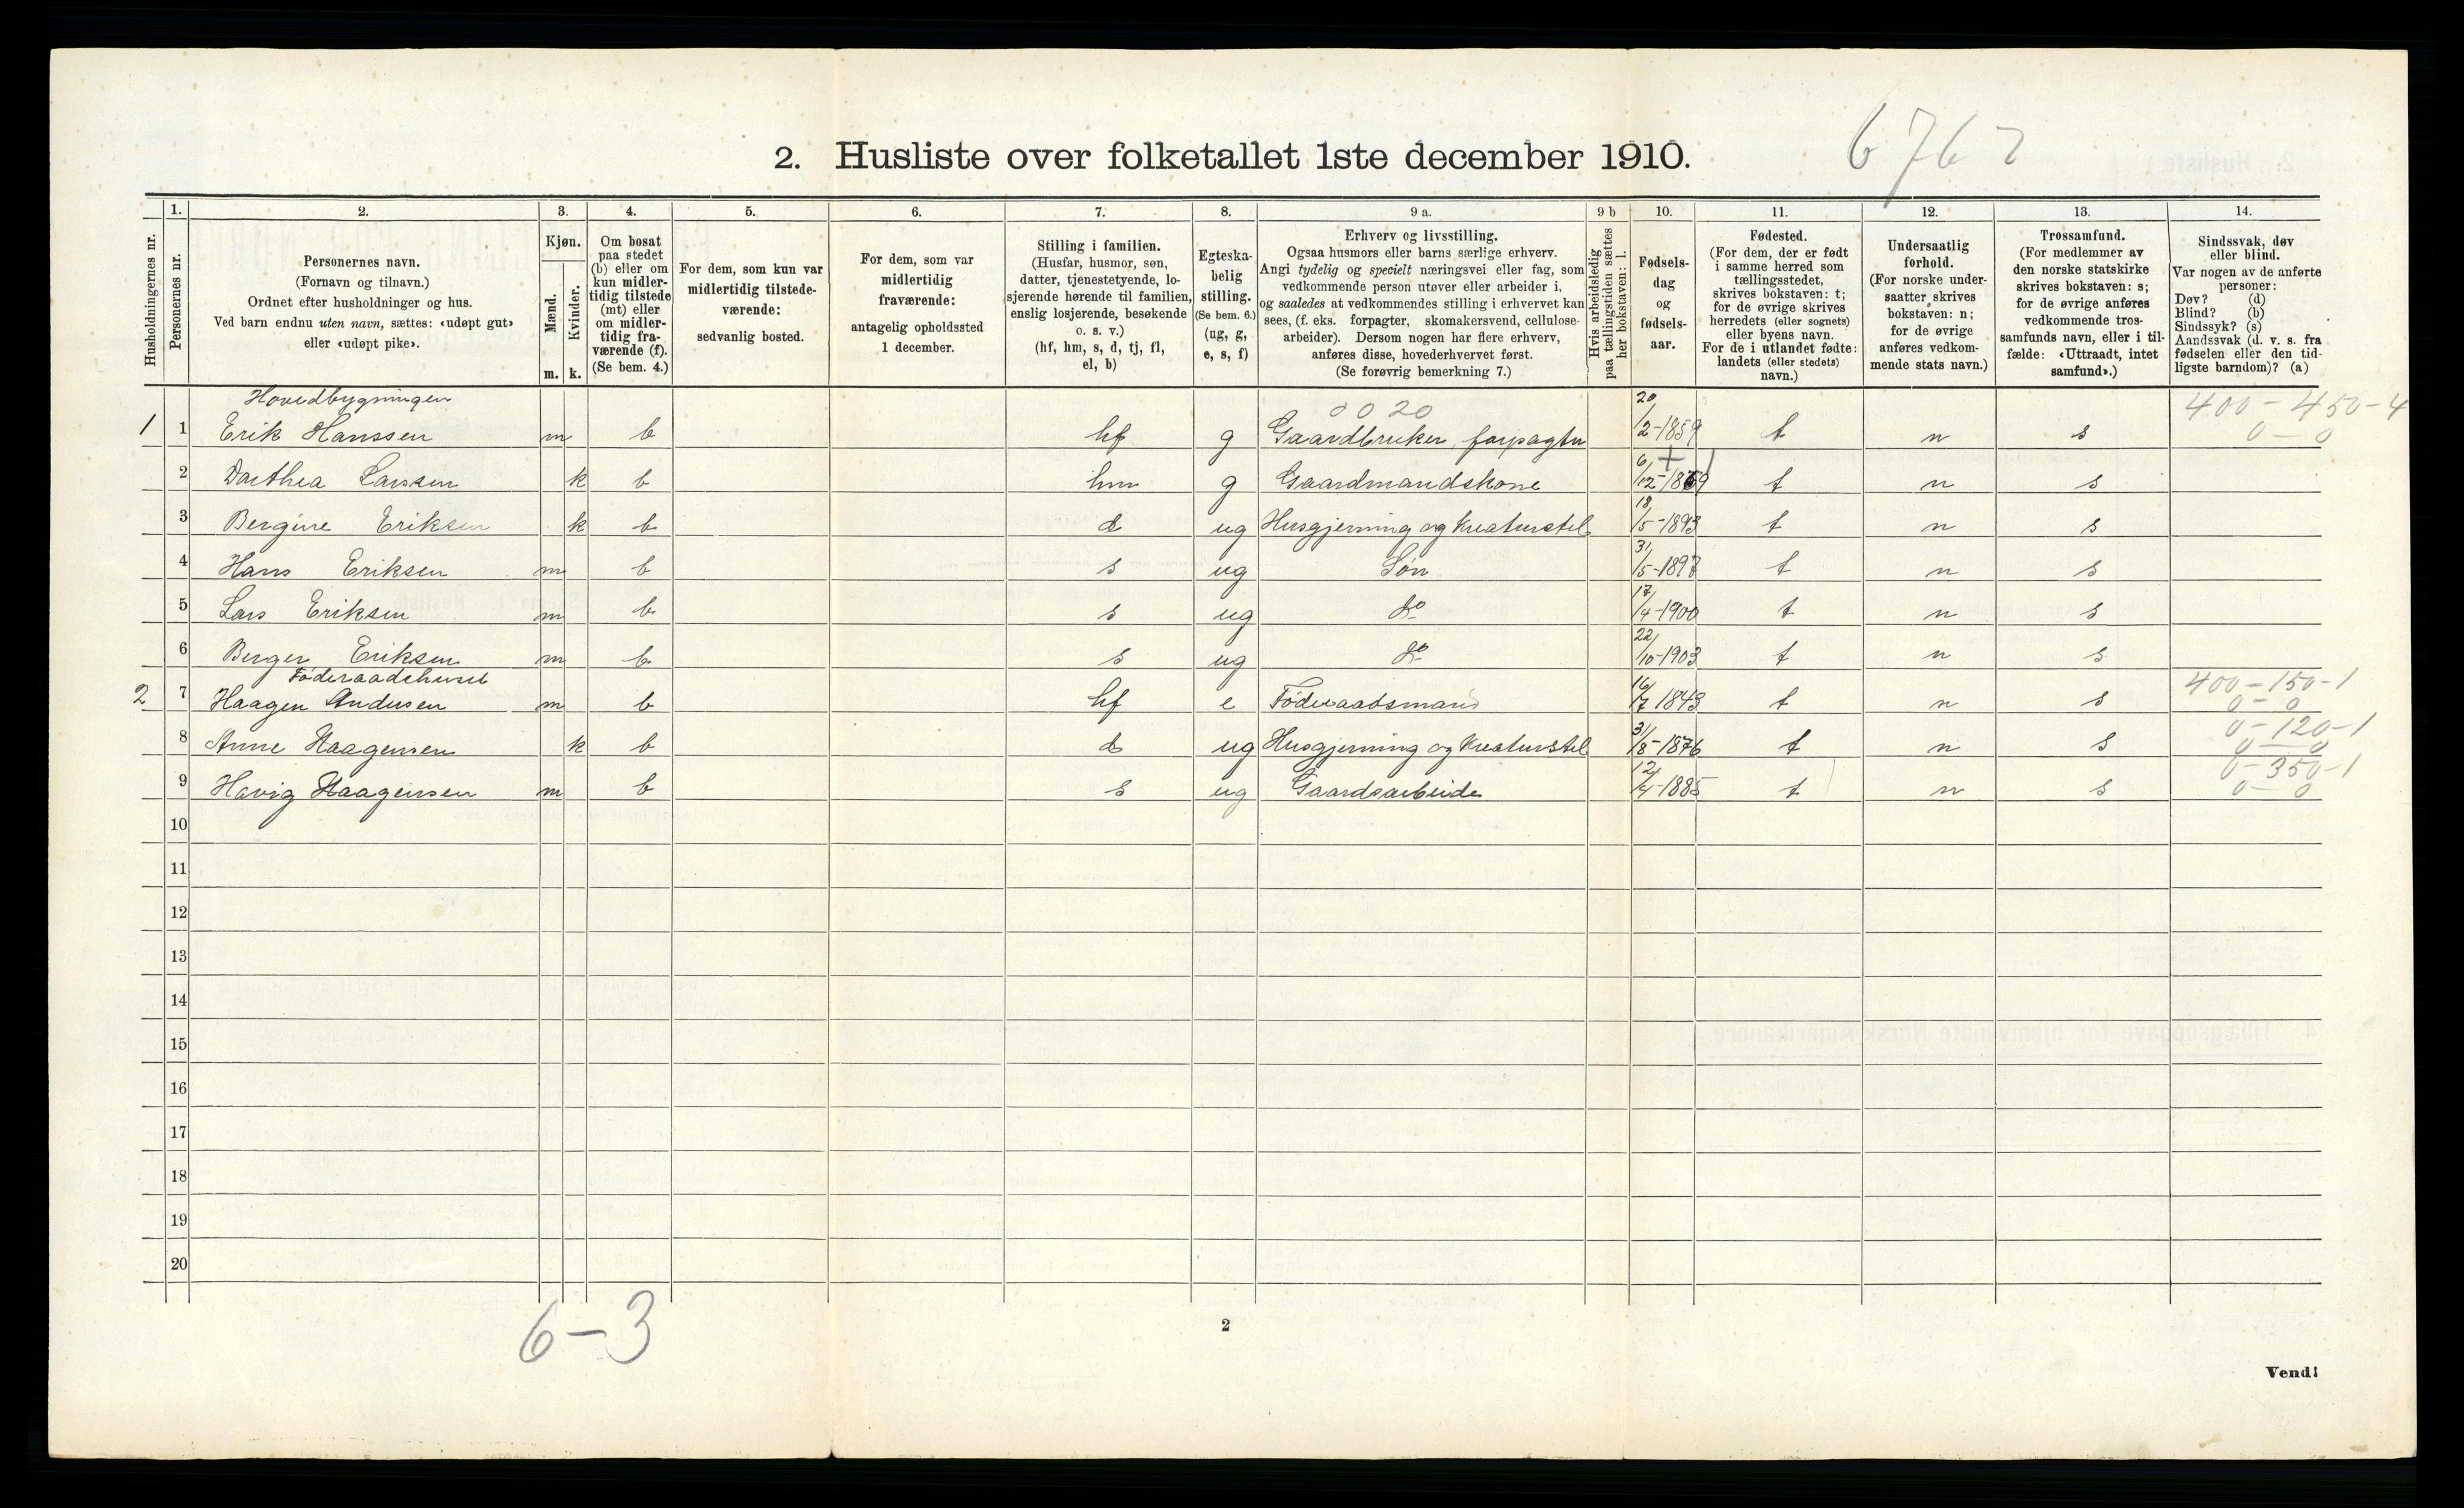 2. Husliste over folketallet 1ste december 1910.
6762
1. 2. 3. 4. 5. 6. 7. 8. 9 a. 9 b 10. 11. 12. 13. 14.
Husholdningernes nr.
Personernes nr.
Personernes navn.
(Fornavn og tilnavn.)
Ordnet efter husholdninger og hus.
Ved barn endnu uten navn, sættes: «udøpt gut»
eller «udøpt pike».
Kjøn.
Mænd.
Kvinder.
m. k.
Om bosat
paa stedet
(b) eller om
kun midler-
tidig tilstede
(mt) eller
om midler-
tidig fra-
værende (f).
(Se bem. 4.)
For dem, som kun var
midlertidig tilstede-
værende:
sedvanlig bosted.
For dem, som var
midlertidig
fraværende:
antagelig opholdssted
1 december.
Stilling i familien.
(Husfar, husmor, søn,
datter, tjenestetyende, lo-
sjerende hørende til familien,
enslig losjerende, besøkende
o. s. v.)
(hf, hm, s, d, tj, fl,
el, b)
Egteska-
belig
stilling.
(Se bem. 6.)
(ug, g,
e, s, f)
Erhverv og livsstilling.
Ogsaa husmors eller barns særlige erhverv.
Angi tydelig og specielt næringsvei eller fag, som
vedkommende person utøver eller arbeider i,
og saaledes at vedkommendes stilling i erhvervet kan
sees, (f. eks. forpagter, skomakersvend, cellulose-
arbeider). Dersom nogen har flere erhverv,
anføres disse, hovederhvervet først.
(Se forøvrig bemerkning 7.)
Hvis arbeidsledig
paa tællingstiden sættes
her bokstaven: l.
Fødsels-
dag
og
fødsels-
aar.
Fødested.
(For dem, der er født
i samme herred som
tællingsstedet,
skrives bokstaven: t;
for de øvrige skrives
herredets (eller sognets)
eller byens navn.
For de i utlandet fødte:
landets (eller stedets)
navn.)
Undersaatlig
forhold.
(For norske under-
saatter skrives
bokstaven: n;
for de øvrige
anføres vedkom-
mende stats navn.)
Trossamfund.
(For medlemmer av
den norske statskirke
skrives bokstaven: s;
for de øvrige anføres
vedkommende tros-
samfunds navn, eller i til-
fælde: «Uttraadt, intet
samfund».)
Sindssvak, døv
eller blind.
Var nogen av de anførte
personer:
Døv? (d)
Blind? (b)
Sindssyk? (s)
Aandssvak (d. v. s. fra
fødselen eller den tid-
ligste barndom)? (a)
Hovedbygningen 0020 400-450-4
1 1 Erik Hanssen m b hf g Gaardbruker, forpagter 20/2-1859 t n s 0-0
2 Dorthea Larssen k b hm g Gaardmandskone 6/12-1869 t n s
3 Bergine Eriksen k b d ug Husgjerning og Kreaturstel 18/5-1893 t n s
4 Hans Eriksen m b s ug Søn 31/5-1897 t n s
5 Lars Eriksen m b s ug Do 17/4-1900 t n s
6 Berger Eriksen m b s ug Do 22/10-1903 t n s
Føderaadshuset 400-150-1
2 7 Haagen Andersen m b hf e Føderaadsmand 16/7 1843 t n s 0-0
0-120-1
8 Anne Haagensen k b d ug Husgjerning og Kreaturstel 31/8-1876 t n s 0-0
0-350-1
9 Havig Haagensen m b s ug Gaardsarbeide 12/4-1885 t n s 0-0
10
11
12
13
14
15
16
17
18
19
20
6-3
2
Vend!